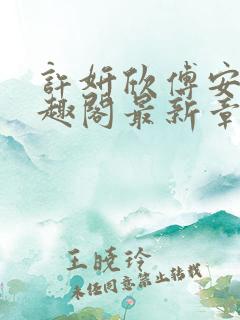 許妍欣傅安
趣閣最新章
王曉玲
未經同意禁止轉載